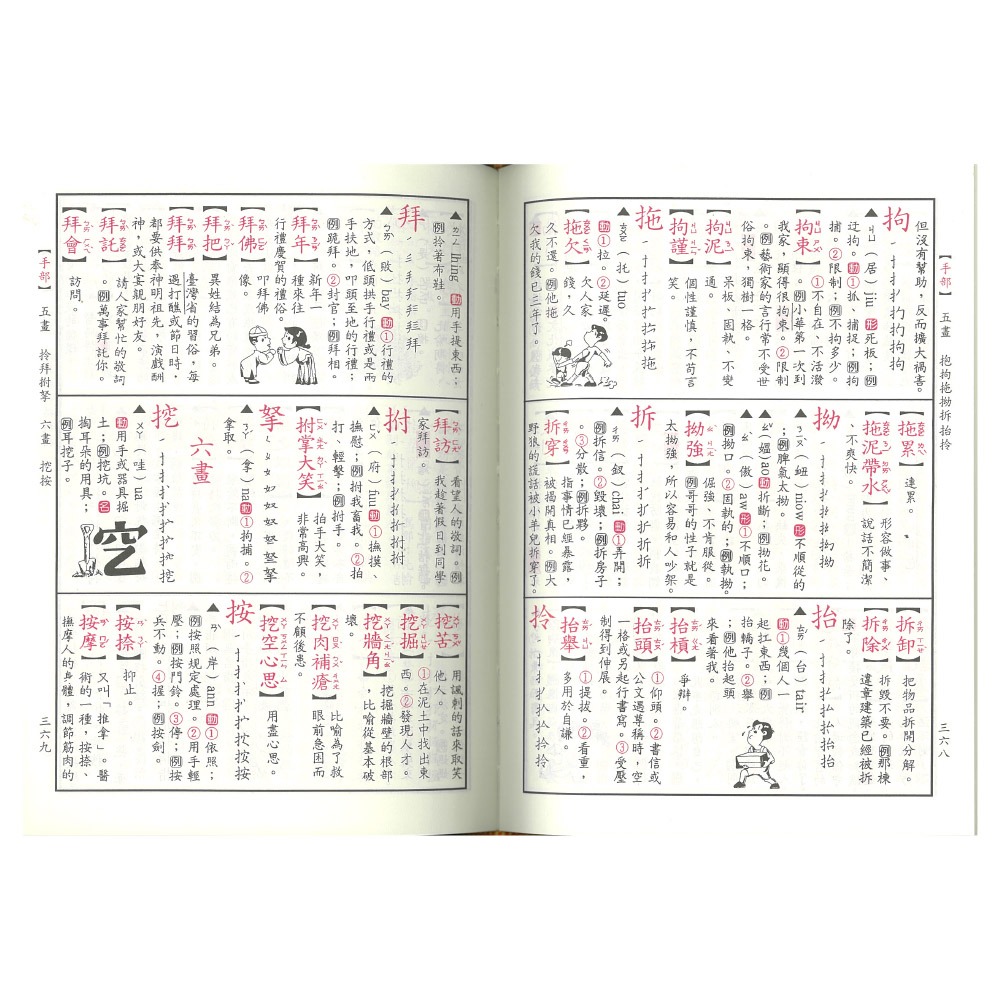 【手部】 五畫 抱拘拖拗拆抬拎
三六八
但沒有幫助，反而擴大禍害。
拘
▲ㄐㄩ（居）jiu 形死板；例
迂拘。動①抓、捕捉；例拘
捕。②限制；例不拘多少。
【拘束】①不自在、不活潑
。例小華第一次到
我家，顯得很拘束。②限制
。例藝術家的言行常不受世
俗拘束，獨樹一格。
【拘泥】呆板、固執、不變
通。
【拘謹】個性謹慎，不苟言
笑。
拖
▲ㄊㄨㄛ（托）tuo
動①拉。②延遲。
【拖欠】欠人家
錢，久
久不還。例他拖
欠我的錢已三年了。
【拖累】連累。
【拖泥帶水】形容做事、
說話不簡潔
、不爽快。
拗
▲ㄋㄧㄡˋ niow 形不順從的
；例脾氣太拗。
▲ㄠˇ（媼）ao 動折斷；例拗花。
▲ㄠˋ（傲）aw 形①不順口；
例拗口。②固執的；例執拗。
【拗強】倔強、不肯服從。
例哥哥的性子就是
太拗強，所以容易和人吵架。
拆
▲ㄔㄞ（釵）chai 動①弄開；
例拆信。②毀壞；例拆房子
。③分散；例拆夥。
【拆穿】指事情已經暴露，
被揭開真相。例大
野狼的謊話被小羊兒拆穿了。
【拆卸】把物品拆開分解。
【拆除】拆毀不要。例那棟
違章建築已經被拆
除了。
抬
▲ㄊㄞˊ（台）tair
動①幾個人一
起扛東西；例
抬轎子。②舉
；例他抬起頭
來看著我。
【抬槓】爭辯。
【抬頭】①仰頭。②書信或
公文遇尊稱時，空
一格或另起行書寫。③受壓
制得到伸展。
【抬舉】①提拔。②看重，
多用於自謙。
拎
【手部】 五畫 拎拜拊拏 六畫 挖按
三六九
▲ㄌㄧㄥ lhing 動用手提東西；
例拎著布鞋。
拜
▲ㄅㄞˋ（敗）bay 動①行禮的
方式，低頭拱手行禮或是兩
手扶地，叩頭至地的行禮；
例跪拜。②封官；例拜相。
【拜年】新年一
種來往
行禮慶賀的禮俗。
【拜佛】叩拜佛
像。
【拜把】異姓結為兄弟。
【拜拜】臺灣省的習俗，每
遇打醮或節日時，
都要供奉神明祖先，演戲酬
神，或大宴親朋好友。
【拜託】請人家幫忙的敬詞
。例萬事拜託你。
【拜會】訪問。
【拜訪】看望人的敬詞。例
我趁著假日到同學
家拜訪。
拊
▲ㄈㄨˇ（府）fuu 動①撫摸、
撫慰；例拊我畜我。②拍
打、輕擊；例拊手。
【拊掌大笑】拍手大笑，
非常高興。
拏
▲ㄋㄚˊ（拿）na 動①拘捕。②
拿取。
六畫
挖
▲ㄨㄚ（哇）ua
動用手或器具掘
土；例挖坑。名
掏耳朵的用具；
例耳挖子。
挖
【挖苦】用諷刺的話來取笑
他人。
【挖掘】①在泥土中找出東
西。②發現人才。
【挖牆角】挖掘牆壁的根部
，比喻從基本破
壞。
【挖肉補瘡】比喻為了救
眼前急困而
不顧後患。
【挖空心思】用盡心思。
按
▲ㄢˋ（岸）ann 動①依照；
例按照規定處理。②用手輕
壓；例按門鈴。③停；例按
兵不動。④握；例按劍。
【按捺】抑止。
【按摩】又叫「推拿」。醫
術的一種，按捺、
撫摩人的身體，調節筋肉的